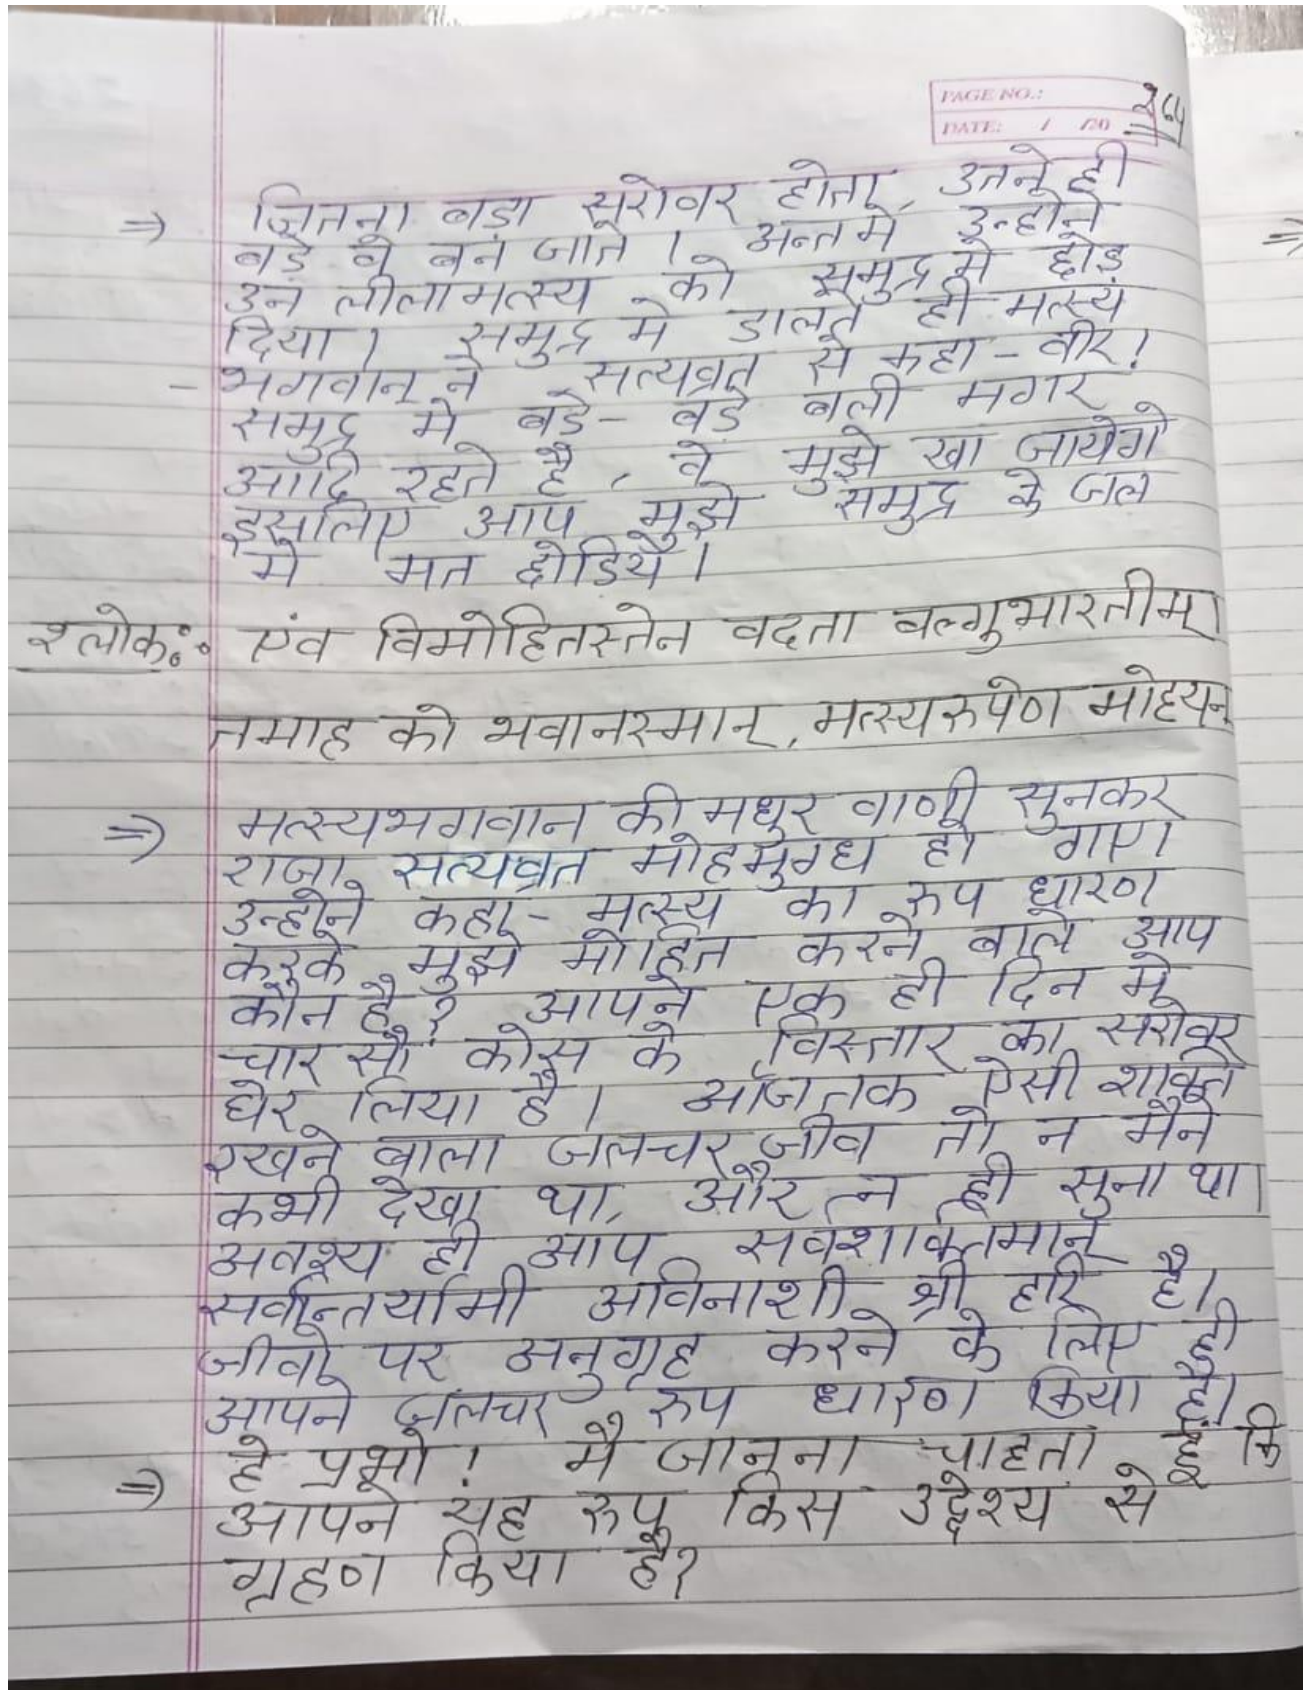 PAGE NO.: २६५
DATE: / /20
⇒ जितना बडा सरोवर होता, उतने ही
बडे वे बन जाते । अन्तमे उन्होने
उन लीलामत्स्य को समुद्र मे छोड़
दिया । समुद्र मे डालते ही मत्स्य
- भगवान् ने सत्यव्रत से कहा - वीर!
समुद्र मे बडे - बडे बली मगर
आदि रहते है , वे मुझे खा जायेगे
इसलिए आप मुझे समुद्र के जल
मे मत छोडिये ।
श्लोक:- एंव विमोहितस्तेन वदता वल्गुभारतीम् ।
तमाह को भवानस्मान् , मत्स्यरुपेण मोहयन्
⇒ मत्स्यभगवान की मधुर वाणी सुनकर
राजा सत्यव्रत मोहमुग्ध हो गए।
उन्होने कहा - मत्स्य का रुप धारण
करके मुझे मोहित करने बाले आप
कौन है? आपने एक ही दिन मे
चार सौ कोस के विस्तार का सरोवर
घेर लिया है । आजतक ऐसी शक्ति
रखने बाला जलचर जीव तो न मैने
कभी देखा था, और न ही सुना था।
अवश्य ही आप सर्वशक्तिमान्
सर्वान्तर्यामी अविनाशी श्री हरि है।
जीवो पर अनुग्रह करने के लिए ही
आपने जलचर रुप धारण किया है।
⇒ हे प्रभो! मै जानना चाहता हूँ कि
आपने यह रुप किस उद्देश्य से
ग्रहण किया है?
⇒